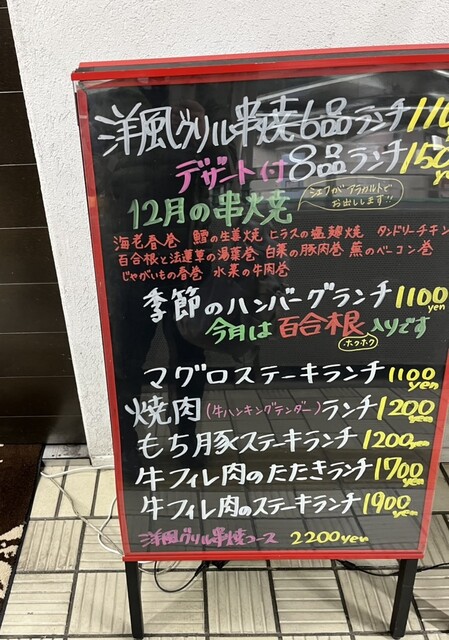 洋風グリル串焼6品ランチ 110
デザート付8品ランチ 150
yen
12月の串焼
シェフがアラカルトで
お出しします!!
海老春巻 鱈の生姜焼 ヒラスの塩麹焼 タンドリーチキン
百合根と法蓮草の湯葉巻 白菜の豚肉巻 蕪のベーコン巻
じゃがいもの春巻 水菜の牛肉巻
季節のハンバーグランチ 1100
yen
今月は百合根入りです
ホクホク
マグロステーキランチ 1100
yen
焼肉(牛ハンキングテンダー)ランチ 1200
yen
もち豚ステーキランチ 1200yen
牛フィレ肉のたたきランチ 1700
yen
牛フィレ肉のステーキランチ 1900
yen
洋風グリル串焼コース 2200yen